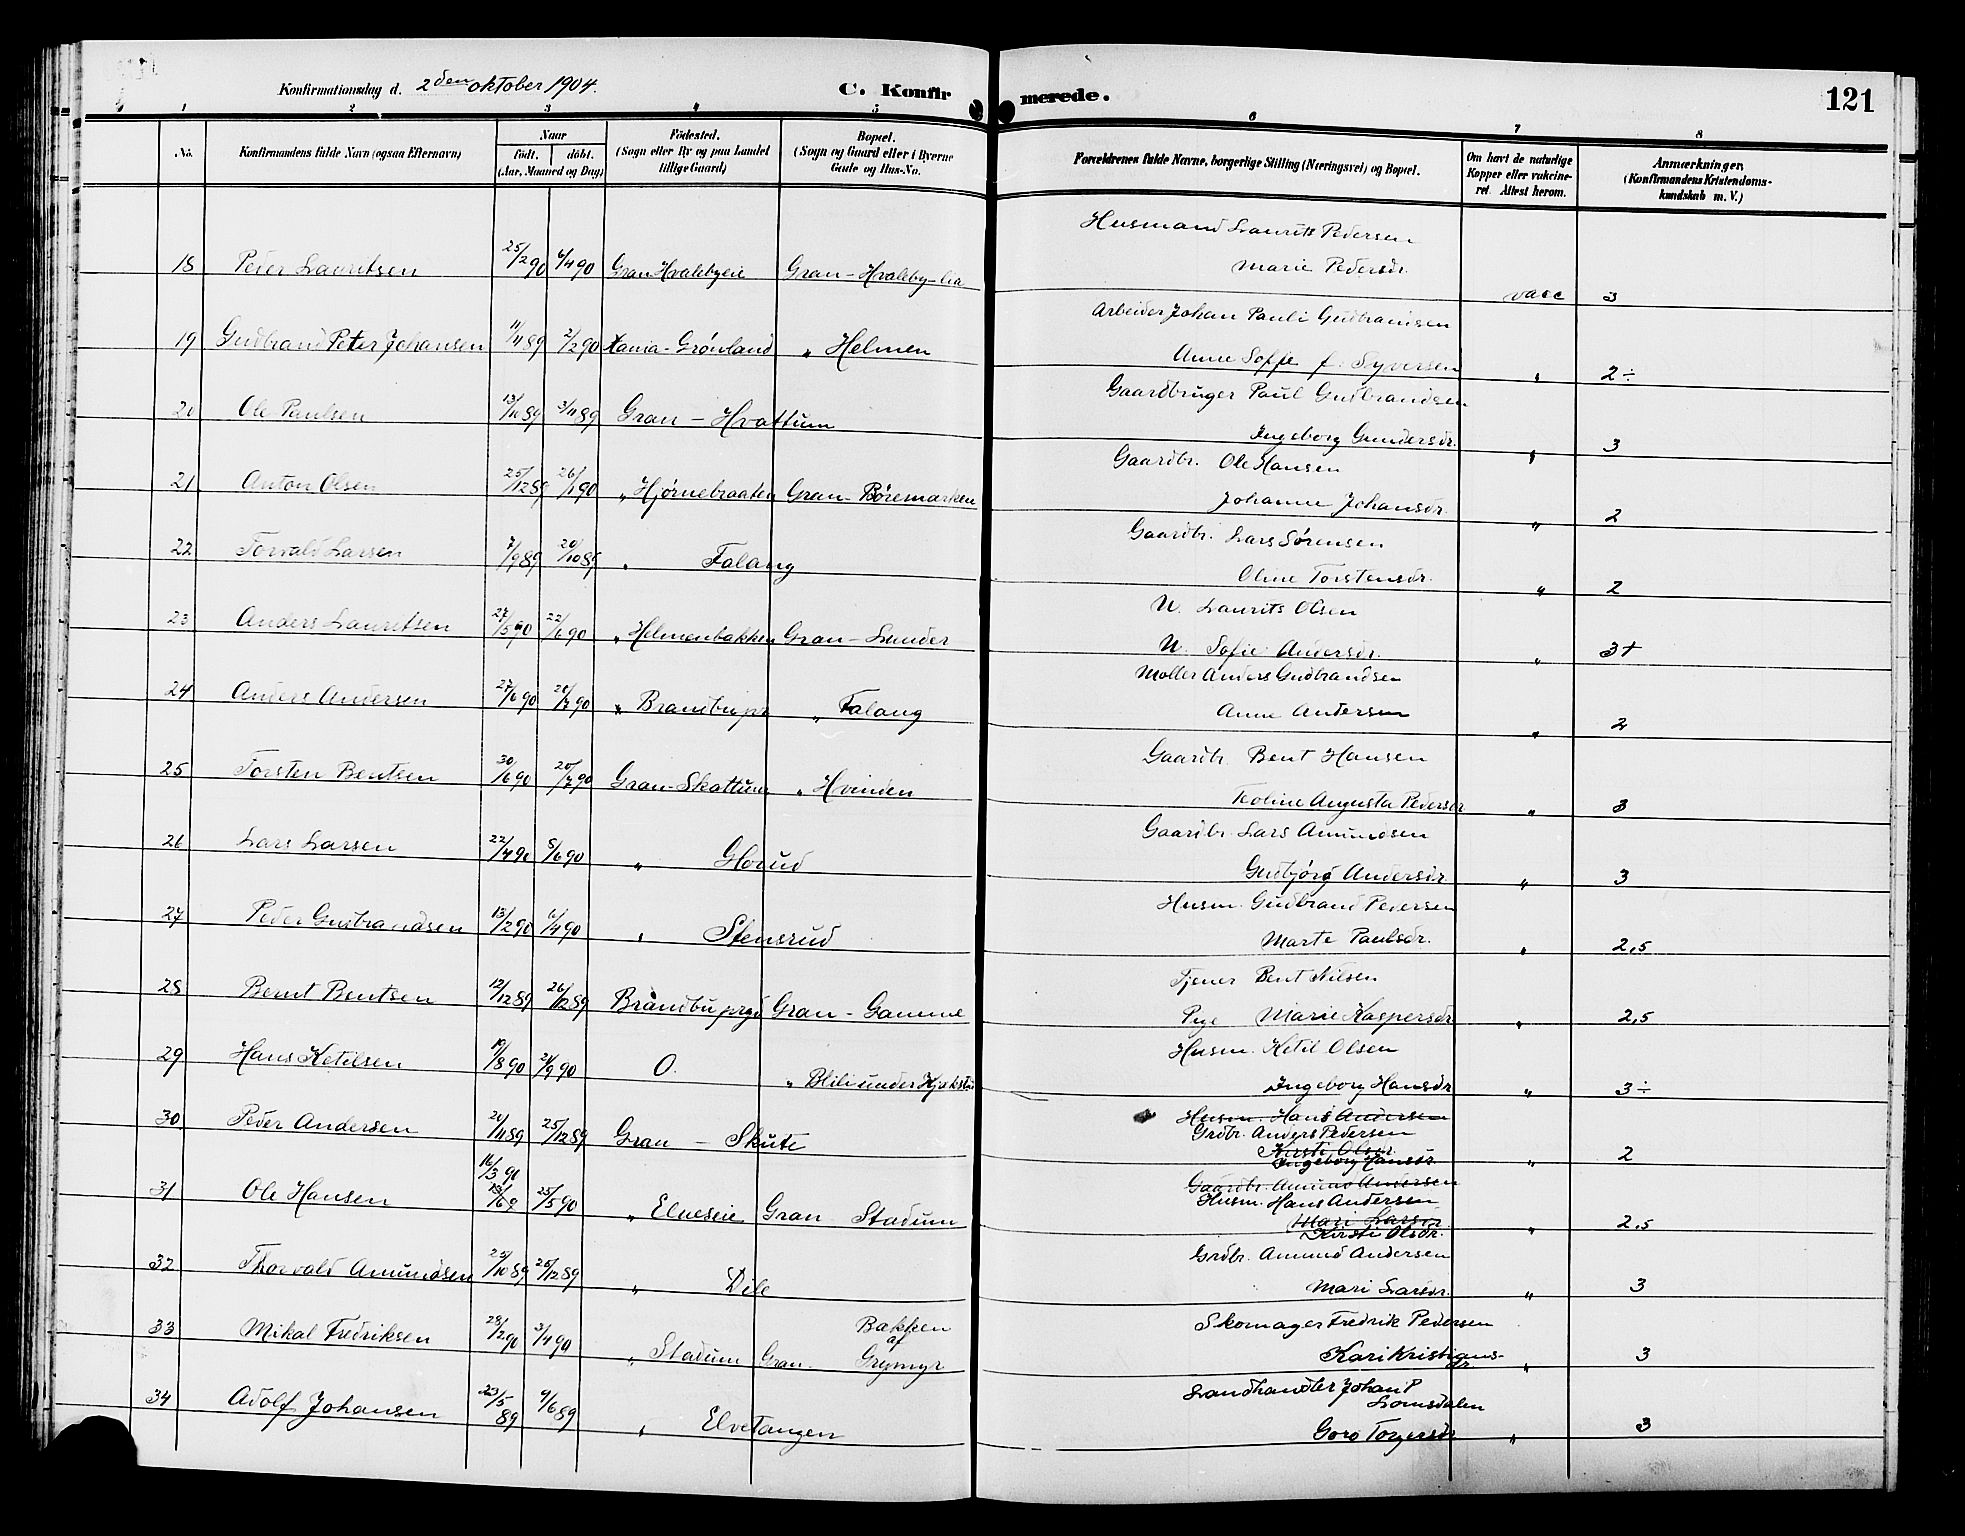 Konfirmationsdag d. 2den oktober 1904. C. Konfirmerede. 121
1 2 3 4 5 6 7 8
No. Konfirmandens fulde Navn (ogsaa Efternavn) Naar født. døbt. (Aar, Maaned og Dag) Fødested. (Sogn eller By og paa Landet tillige Gaard) Bopæl. (Sogn og Gaard eller i Byerne Gade og Hus-No. Forældrenes fulde Navne, borgerlige Stilling (Næringsvei) og Bopæl. Om havt de naturlige Kopper eller vakcineret. Attest herom. Anmærkninger, (Konfirmandens Kristendomskundskab m. V.)
Husmand Laurits Pedersen
18 Peder Lauritsen 25/2 90 4/4 90 Gran Hvalebyeie Gran - Hvaleby-lia Marie Pedersdr. vacc 3
Arbeider Johan Pauli Gudbransen
19 Gudbrand Peter Johansen 11/11 89 2/2 90 Xania-Grønland " Helmen Anne Soffie f. Syversen " 2÷
Gaardbruger Paul Gudbrandsen
20 Ole Paulsen 13/10 89 3/11 89 Gran - Hvattum Ingeborg Gundersdr. " 3
Gaardbr. Ole Hansen
21 Anton Olsen 25/12 89 26/1 90 " Hjørnebraaten Gran - Børemarken Johanne Johansdr. " 2
Gaardbr. Lars Sørensen
22 Torvald Larsen 7/9 89 20/10 89 " Falang Oline Torstensdr. " 2
U. Laurits Olsen
23 Anders Lauritsen 27/5 90 22/6 90 " Helmenbakken Gran - Lunder U. Sofie Andersdr. " 3+
Møller Anders Gudbrandsen
24 Anders Andersen 27/6 90 20/7 90 " Brandbu pr " Falang Anne Andersen " 2
Gaardbr. Bent Hansen
25 Torsten Bentsen 30/6 90 20/7 90 Gran-Skattum " Hvinden Teoline Augusta Pedersdr " 3
Gaardbr. Lars Amundsen
26 Lars Larsen 22/4 90 5/6 90 " Glorud Gudbjørg Andersdr. " 3
Husm. Gudbrand Pedersen
27 Peder Gudbrandsen 13/2 90 6/4 90 " Stensrud Marte Paulsdr. " 2,5
Tjener Bent Nilsen
28 Bernt Bentsen 12/12 89 26/12 89 Brandbu prgd Gran - Gamme Pige Marie Kaspersdr " 2,5
Husm. Ketil Olsen
29 Hans Ketilsen 19/8 90 21/9 90 O. " Blili under Ingeborg Hansdr " 3÷
Husm. Hans Andersen
Grdbr. Anders Pedersen
30 Peder Andersen 21/11 89 25/12 89 Gran - Skute Kirsti Olsdr. " 2
Ingeborg Hansdr.
16/3 90 Gaardbr. Amund Andersen
Husm. Hans Andersen
31 Ole Hansen 25/5 90 " Elueseie Gran Stadum Mari Larsdr. " 2,5
Kirsti Olsdr.
Grdbr. Amund Andersen
32 Thorvald Amundsen 25/10 89 25/12 89 " Dile Mari Larsdr. " 3
Skomager Fredrik Pedersen
33 Mikal Fredriksen 28/2 90 3/4 90 " Stadum Gran. Bakken af Grymyr Kari Kristiansdr. " 3
Landhandler Johan P Lomsdalen
34 Adolf Johansen 23/5 89 9/6 89 " Elvetangen Goro Torgersdr " 3